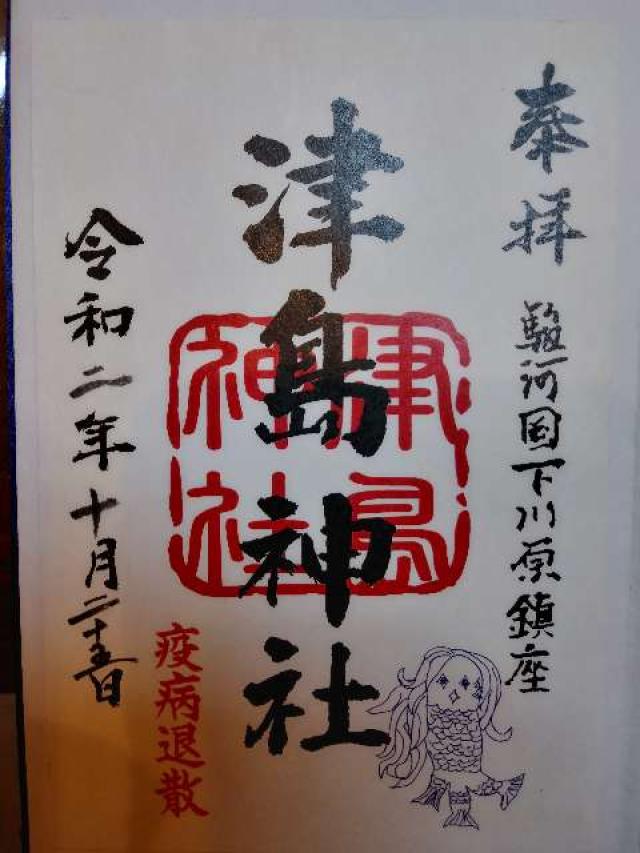 奉拝
駿河国下川原鎮座
津島神社
津島神社
疫病退散
令和二年十月二十五日